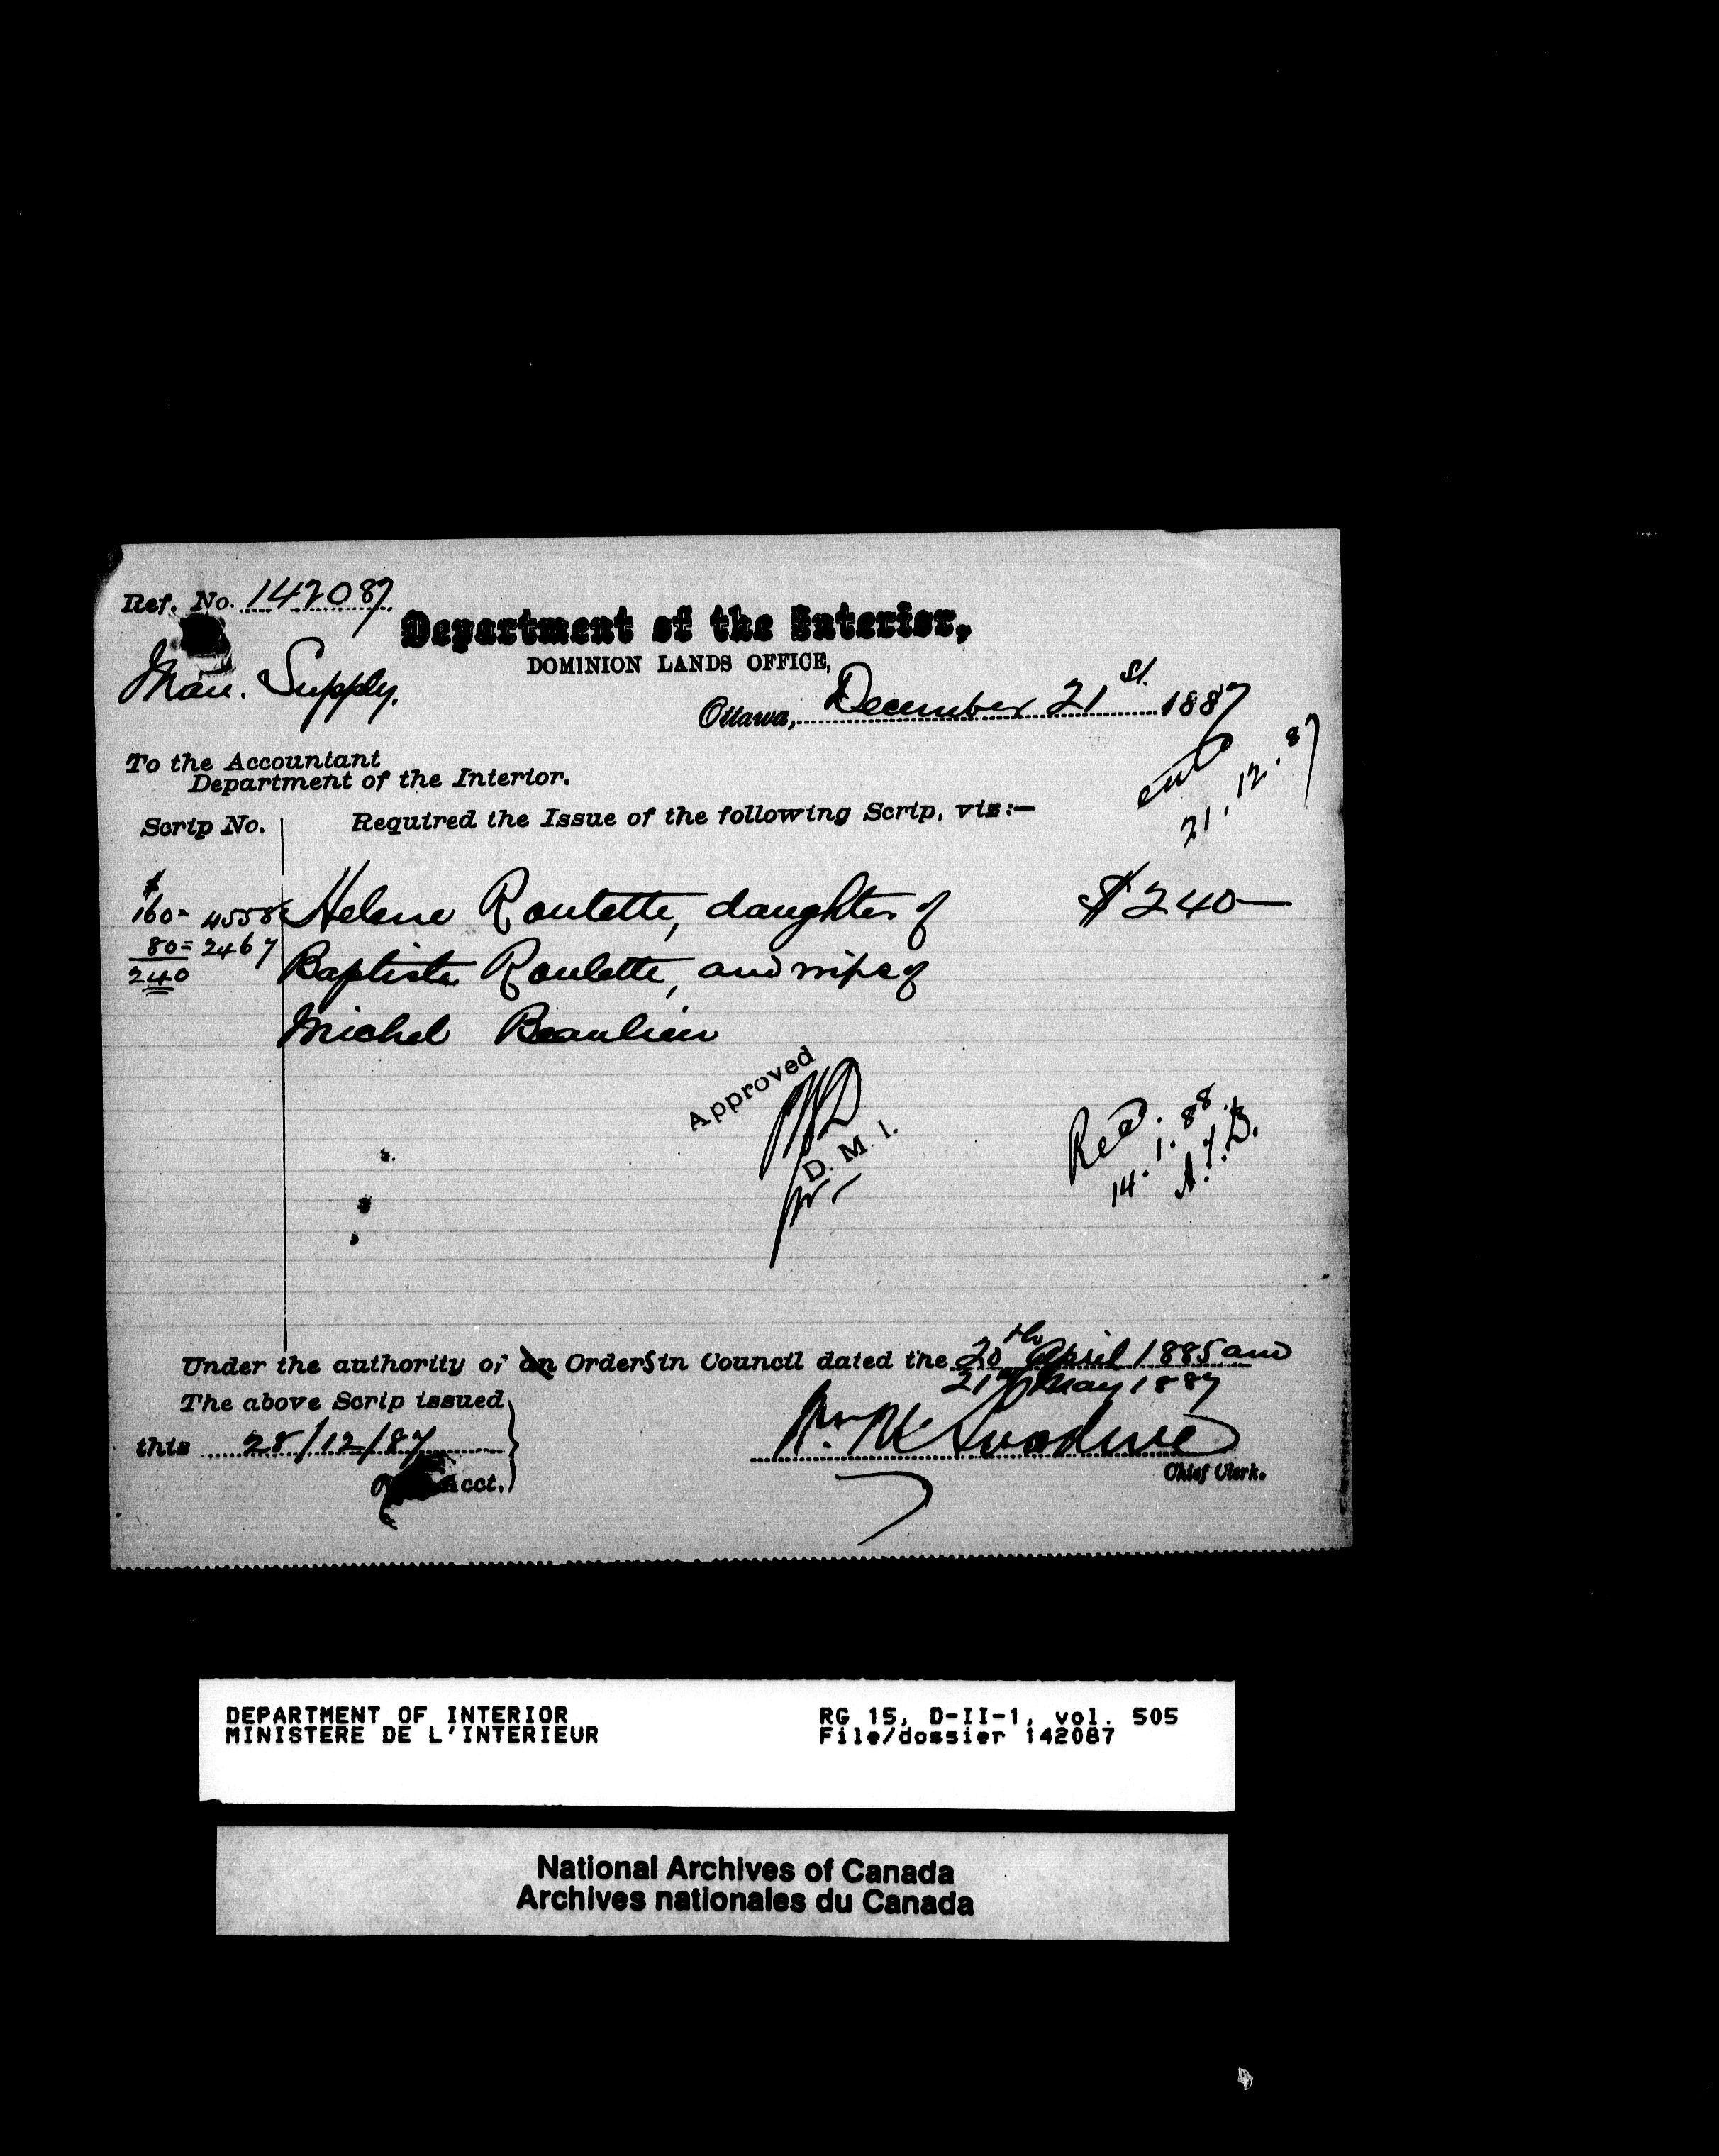 Ref. No. 142087
Man. Supply.
Department of the Interior,
DOMINION LANDS OFFICE,
Ottawa, December 21st. 1887
ent 21.12.87
To the Accountant
Department of the Interior.
Scrip No. Required the Issue of the following Scrip, viz:—
$
160= 4558 Helene Roulette, daughter of $240—
80= 2467 Baptiste Roulette, and wife of
240 Michel Beaulieu
Approved
D. M. I.
Rec'd.
14.1.88.
Under the authority of an Orders in Council dated the 20th April 1885 and
21st May 1887
The above Scrip issued
this 28/12/87
Acct.
Chief Clerk.
DEPARTMENT OF INTERIOR RG 15, D-II-1, vol. 505
MINISTERE DE L'INTERIEUR File/dossier 142087
National Archives of Canada
Archives nationales du Canada